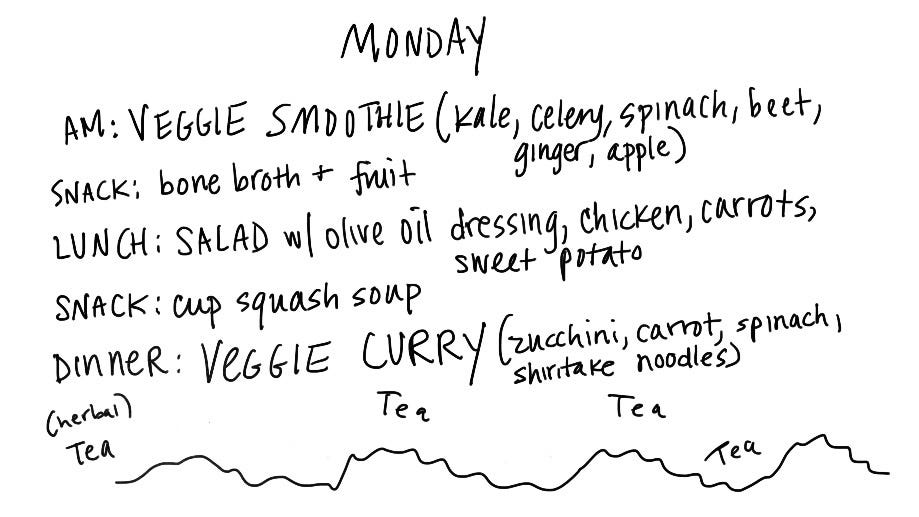 MONDAY
AM: VEGGIE SMOOTHIE (kale, celery, spinach, beet,
ginger, apple)
SNACK: bone broth + fruit
LUNCH: SALAD w/ olive oil dressing, chicken, carrots,
sweet potato
SNACK: cup squash soup
DINNER: VEGGIE CURRY (zucchini, carrot, spinach,
shiritake noodles)
(herbal) Tea Tea
Tea Tea